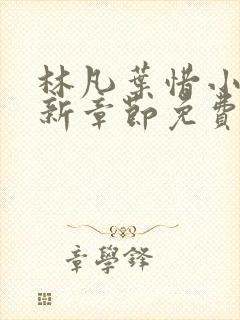 林凡葉惜小
新章節免費
章學鋒